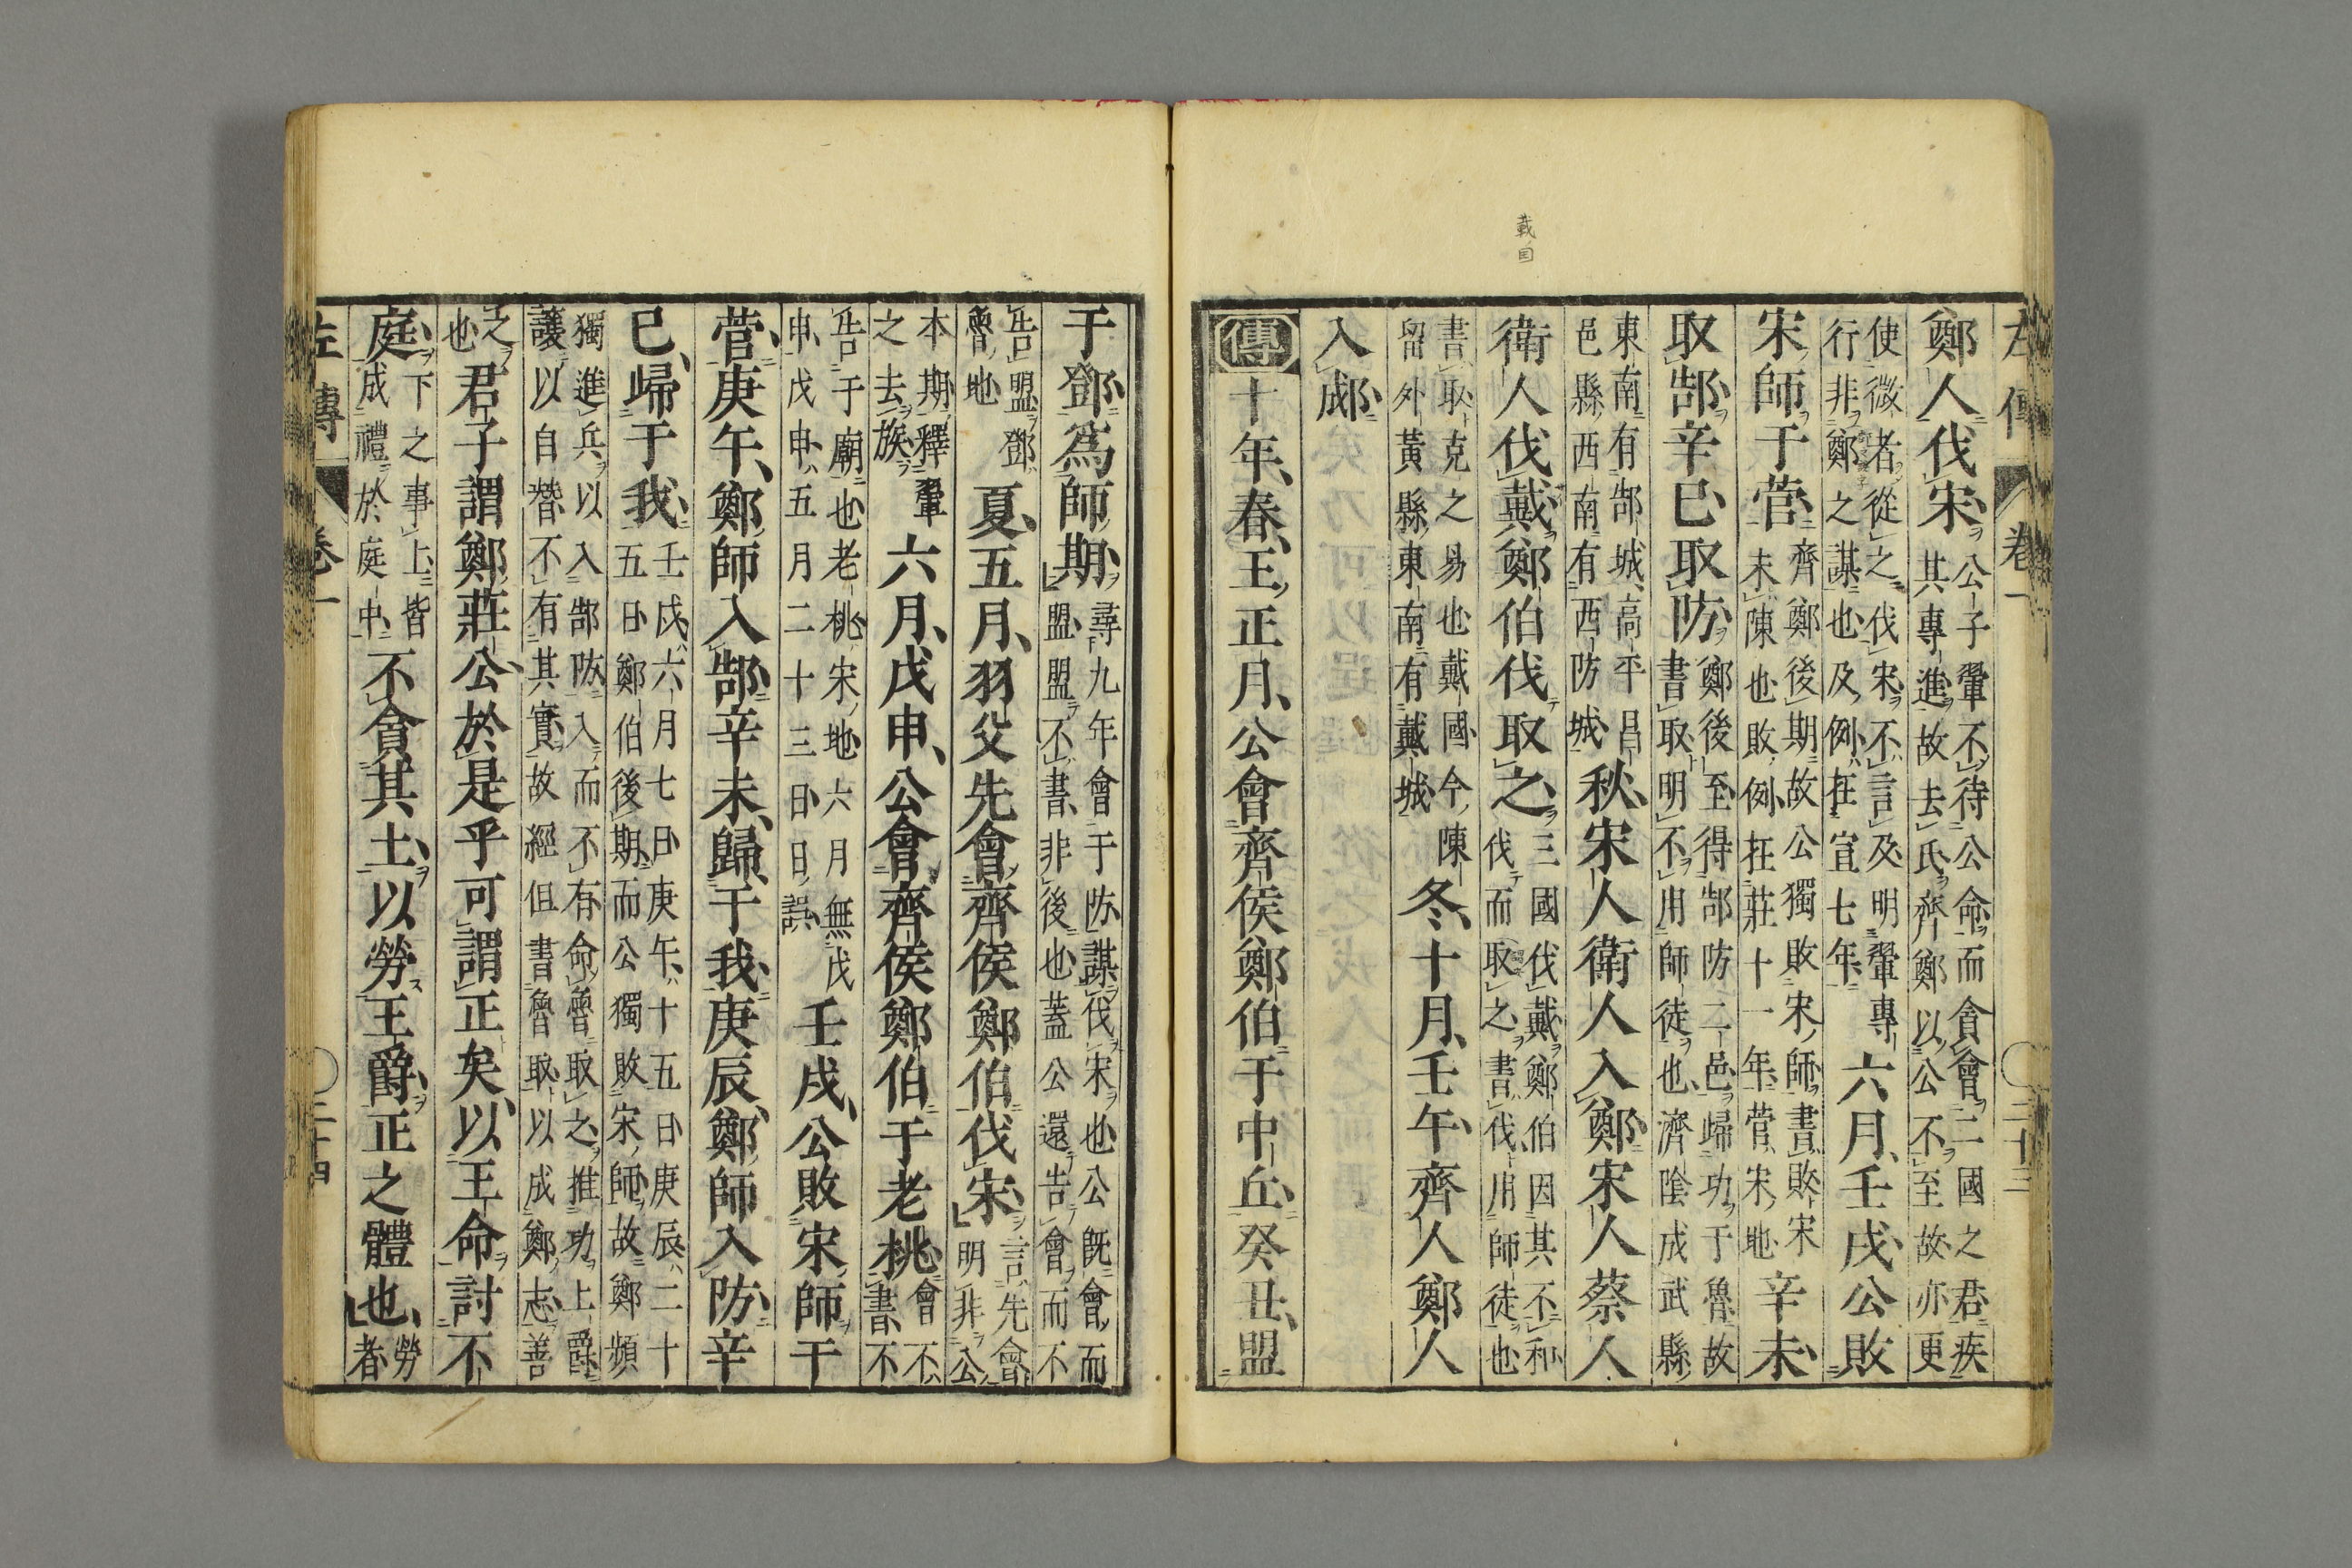 左傳 卷一 二十三
鄭人伐宋公子翬不待公命而貪會二國之君疾
其專進故去氏齊鄭以公不至故亦更
使微者從之伐宋不言及明翬專
行非鄭之謀也及例在宣七年六月壬戌公敗
宋師于菅齊鄭後期故公獨敗宋師書敗宋
未陳也敗例在莊十一年菅宋地辛未
取郜辛巳取防鄭後至得郜防二邑歸功于魯故
書取明不用師徒也濟陰成武縣
東南有郜城高平昌
邑縣西南有西防城秋宋人衛人入鄭宋人蔡人
衛人伐戴鄭伯伐取之三國伐戴鄭伯因其不和
伐而取之書伐用師徒也
書取克之易也戴國今陳
留外黃縣東南有戴城冬十月壬午齊人鄭人
入郕
傳十年春王正月公會齊侯鄭伯于中丘癸丑盟
載自
于鄧爲師期尋九年會于防謀伐宋也公既會而
盟盟不書非後也蓋公還告會而不
告盟鄧
魯地夏五月羽父先會齊侯鄭伯伐宋言先會
明非公
本期釋翬
之去族六月戊申公會齊侯鄭伯于老桃會不
書不
告于廟也老桃宋地六月無戊
申戊申五月二十三日日誤壬戌公敗宋師于
菅庚午鄭師入郜辛未歸于我庚辰鄭師入防辛
巳歸于我壬戌六月七日庚午十五日庚辰二十
五日鄭伯後期而公獨敗宋師故鄭頻
獨進兵以入郜防入而不有命魯取之推功上爵
讓以自替不有其實故經但書魯取以成鄭志善
之
也君子謂鄭莊公於是乎可謂正矣以王命討不
庭下之事上皆
成禮於庭中不貪其土以勞王爵正之體也勞
者
左傳 卷一 二十四